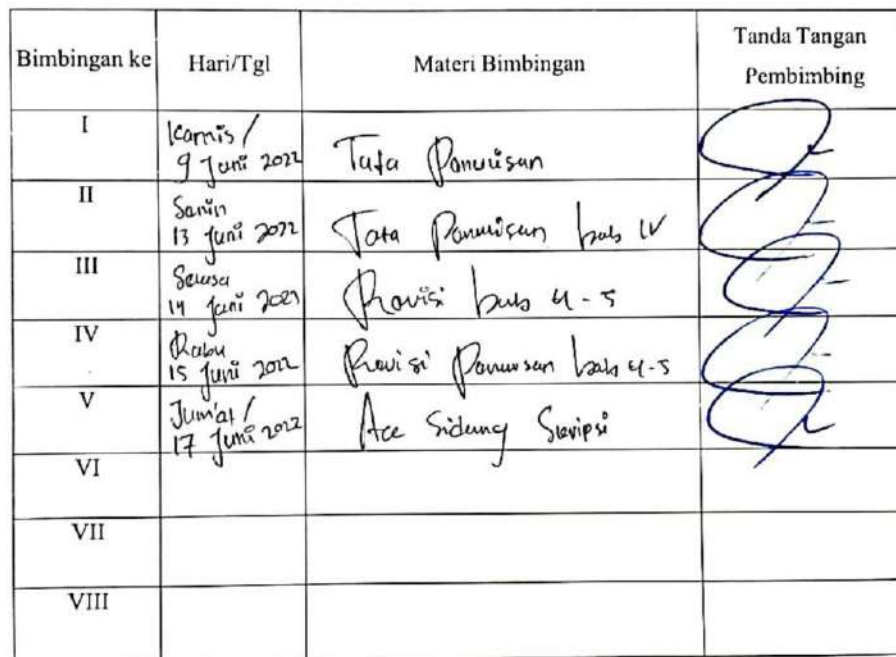 Bimbingan ke Hari/Tgl Materi Bimbingan Tanda Tangan
Pembimbing
I Kamis /
9 Juni 2022 Tata Penulisan
II Senin
13 Juni 2022 Tata Penulisan bab IV
III Selasa
14 Juni 2021 Revisi bab 4-5
IV Rabu
15 Juni 2022 Revisi Penulisan bab 4-5
V Jum'at /
17 Juni 2022 Acc Sidang Skripsi
VI
VII
VIII